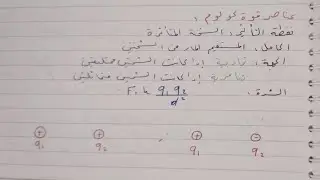 عناصر قوة كولوم :
نقطة التأثير : الشحنة المتأثرة
الحامل : المستقيم المار من الشحنتين
الجهة : تجاذبية إذا كانت الشحنتين مختلفتين
تنافرية إذا كانت الشحنتين متماثلتين
الشدة : F = k q₁ q₂ / d²
+ + + -
q₁ q₂ q₁ q₂